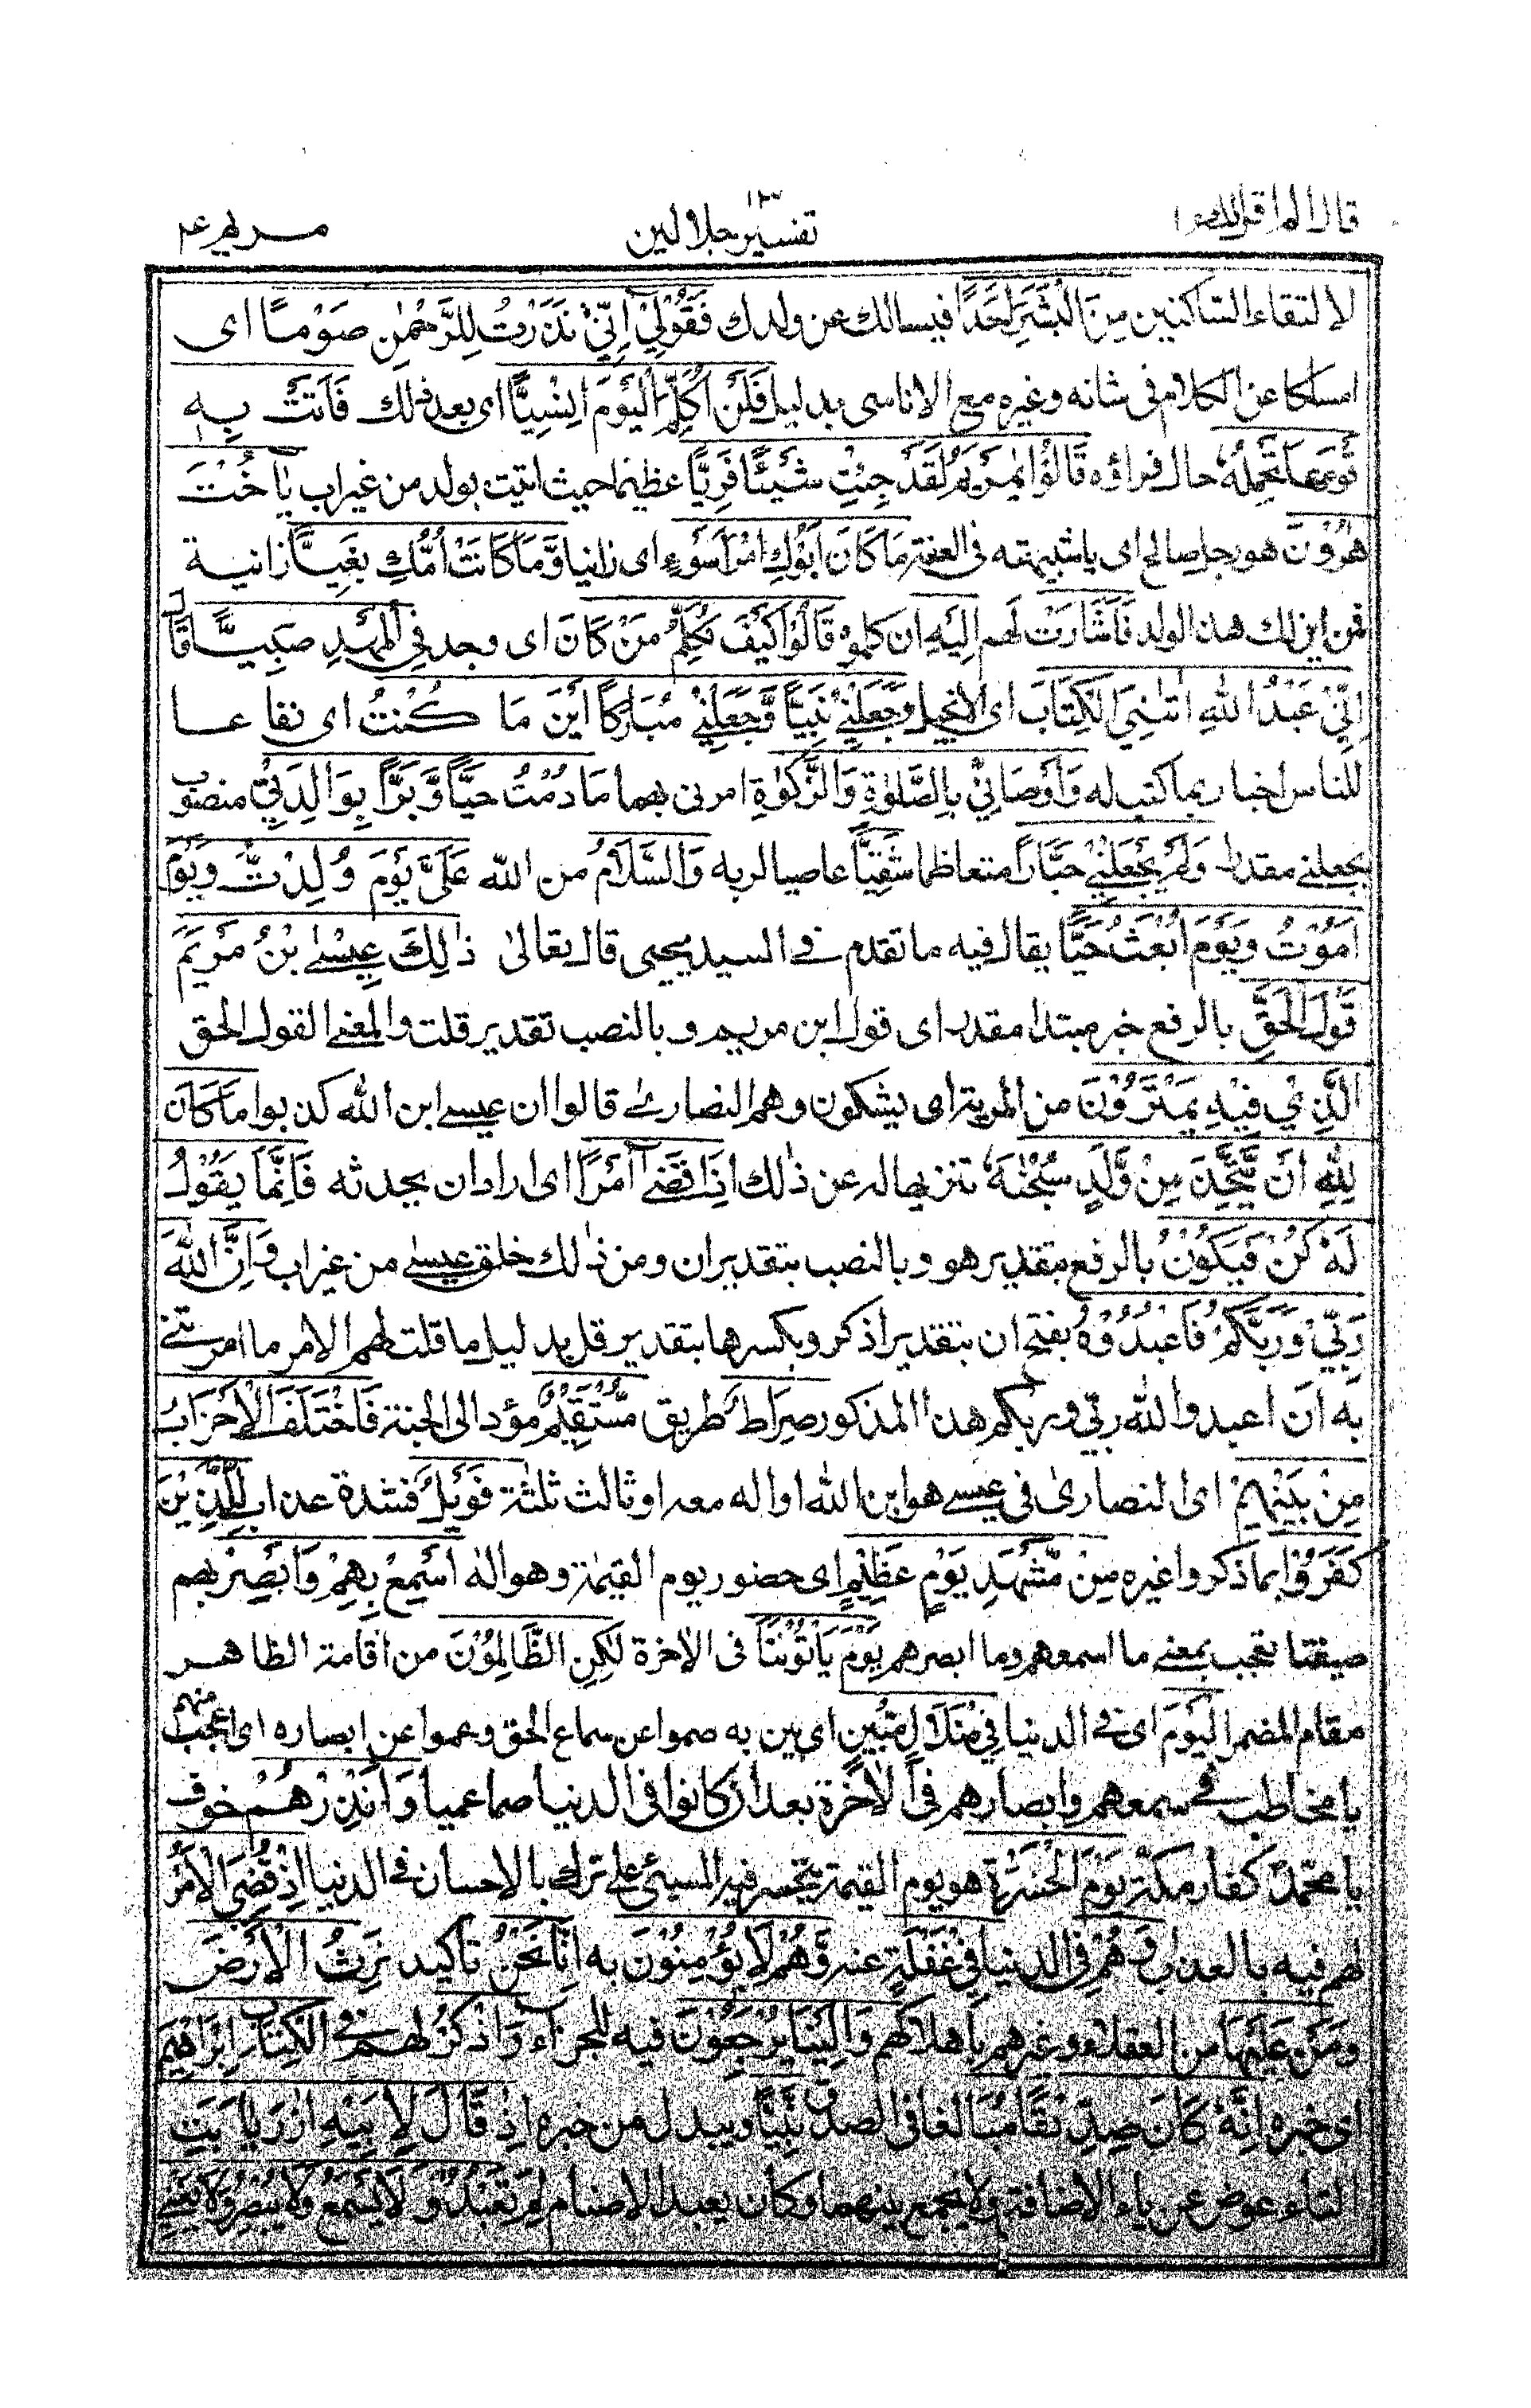 قال الم اقل لك ١٦
تفسير جلالين
مريم
لالتقاء الساكنين مِنَ الْبَشَرِ اَحَدًا فيسالك عن ولدك فَقُوْلِيْٓ اِنِّيْ نَذَرْتُ لِلرَّحْمٰنِ صَوْمًا اى
امساكا عن الكلام فى شانه وغيره مع الاناسى بدليل فَلَنْ اُكَلِّمَ الْيَوْمَ اِنْسِيًّا اى بعد ذلك فَاَتَتْ بِهٖ
قَوْمَهَا تَحْمِلُهٗ حال فراؤه قَالُوْا يٰمَرْيَمُ لَقَدْ جِئْتِ شَيْـًٔا فَرِيًّا عظيما حيث اتيت بولد من غير اب يٰٓاُخْتَ
هٰرُوْنَ هو رجل صالح اى يا شبيهته فى العفة مَا كَانَ اَبُوْكِ امْرَاَ سَوْءٍ اى زانيا وَّمَا كَانَتْ اُمُّكِ بَغِيًّا زانية
فمن اين لك هذا الولد فَاَشَارَتْ لهم اِلَيْهِ ان كلموه قَالُوْا كَيْفَ نُكَلِّمُ مَنْ كَانَ اى وجد فِي الْمَهْدِ صَبِيًّا قَالَ
اِنِّيْ عَبْدُ اللهِ اٰتٰنِيَ الْكِتَابَ اى الانجيل وَجَعَلَنِيْ نَبِيًّا وَّجَعَلَنِيْ مُبَارَكًا اَيْنَ مَا كُنْتُ اى نفاعا
للناس اخبار بما كتب له وَاَوْصَانِيْ بِالصَّلٰوةِ وَالزَّكٰوةِ امرنى بهما مَا دُمْتُ حَيًّا وَّبَرًّا بِوَالِدَتِيْ منصوب
بجعلنى مقدرا وَلَمْ يَجْعَلْنِيْ جَبَّارًا متعاظما شَقِيًّا عاصيا لربه وَالسَّلَامُ من الله عَلَيَّ يَوْمَ وُلِدْتُّ وَيَوْمَ
اَمُوْتُ وَيَوْمَ اُبْعَثُ حَيًّا يقال فيه ما تقدم فى السيد يحيى قال تعالى ذٰلِكَ عِيْسٰى بْنُ مَرْيَمَ
قَوْلَ الْحَقِّ بالرفع خبر مبتدا مقدر اى قول ابن مريم وبالنصب تقدير قلت والمعنى القول الحق
الَّذِيْ فِيْهِ يَمْتَرُوْنَ من المرية اى يشكون وهم النصارى قالوا ان عيسى ابن الله كذبوا مَا كَانَ
لِلّٰهِ اَنْ يَّتَّخِذَ مِنْ وَّلَدٍ سُبْحٰنَهٗ تنزيها له عن ذلك اِذَا قَضٰٓى اَمْرًا اى اراد ان يحدثه فَاِنَّمَا يَقُوْلُ
لَهٗ كُنْ فَيَكُوْنُ بالرفع بتقدير هو وبالنصب بتقدير ان ومن ذلك خلق عيسى من غير اب وَاِنَّ اللهَ
رَبِّيْ وَرَبُّكُمْ فَاعْبُدُوْهُ بفتح ان بتقدير اذكر وبكسرها بتقدير قل بدليل ما قلت لهم الا ما امرتنى
به ان اعبدوا الله ربى وربكم هذا المذكور صِرَاطٌ طريق مُّسْتَقِيْمٌ مؤد الى الجنة فَاخْتَلَفَ الْاَحْزَابُ
مِنْ بَيْنِهِمْ اى النصارى فى عيسى هو ابن الله او اله معه او ثالث ثلثة فَوَيْلٌ فشدة عذاب لِّلَّذِيْنَ
كَفَرُوْا بما ذكر واغيره مِنْ مَّشْهَدِ يَوْمٍ عَظِيْمٍ اى حضور يوم القيمة وهواله اَسْمِعْ بِهِمْ وَاَبْصِرْ بهم
صيغتا تعجب بمعنى ما اسمعهم وما ابصرهم يَوْمَ يَاْتُوْنَنَا فى الاخرة لٰكِنِ الظَّالِمُوْنَ من اقامة الظاهر
مقام المضمر الْيَوْمَ اى فى الدنيا فِيْ ضَلَالٍ مُّبِيْنٍ اى بين به صموا عن سماع الحق وعموا عن ابصاره اى اعجب منهم
يا مخاطب فى سمعهم وابصارهم فى الاخرة بعد ان كانوا فى الدنيا صما عميا وَاَنْذِرْهُمْ خوف
يا محمد كفار مكة يَوْمَ الْحَسْرَةِ هو يوم القيمة يتحسر فيه المسيئى على ترك بالاحسان فى الدنيا اِذْ قُضِيَ الْاَمْرُ
لهم فيه بالعذاب وَهُمْ فى الدنيا فِيْ غَفْلَةٍ عنه وَّهُمْ لَا يُؤْمِنُوْنَ به اِنَّا نَحْنُ تاكيد نَرِثُ الْاَرْضَ
وَمَنْ عَلَيْهَا من العقلاء وغيرهم باهلاكهم وَاِلَيْنَا يُرْجَعُوْنَ فيه للجزاء وَاذْكُرْ لهم فِي الْكِتَابِ اِبْرَاهِيْمَ
اى خبره اِنَّهٗ كَانَ صِدِّيْقًا مبالغا فى الصدق نَّبِيًّا ويبدل من خبره اِذْ قَالَ لِاَبِيْهِ ازر يٰٓاَبَتِ
التاء عوض عن ياء الاضافة ولا يجمع بينهما وكان يعبد الاصنام لِمَ تَعْبُدُ مَا لَا يَسْمَعُ وَلَا يُبْصِرُ وَلَا يُغْنِيْ